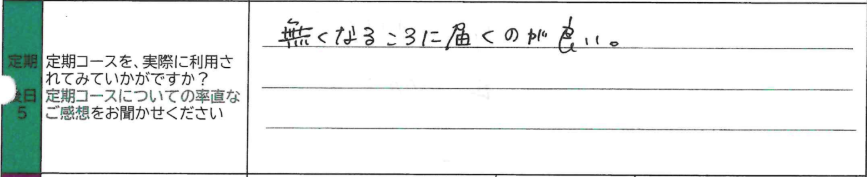 定期
後日
5
定期コースを、実際に利用さ
れてみていかがですか？
定期コースについての率直な
ご感想をお聞かせください
無くなるころに届くのが良い。